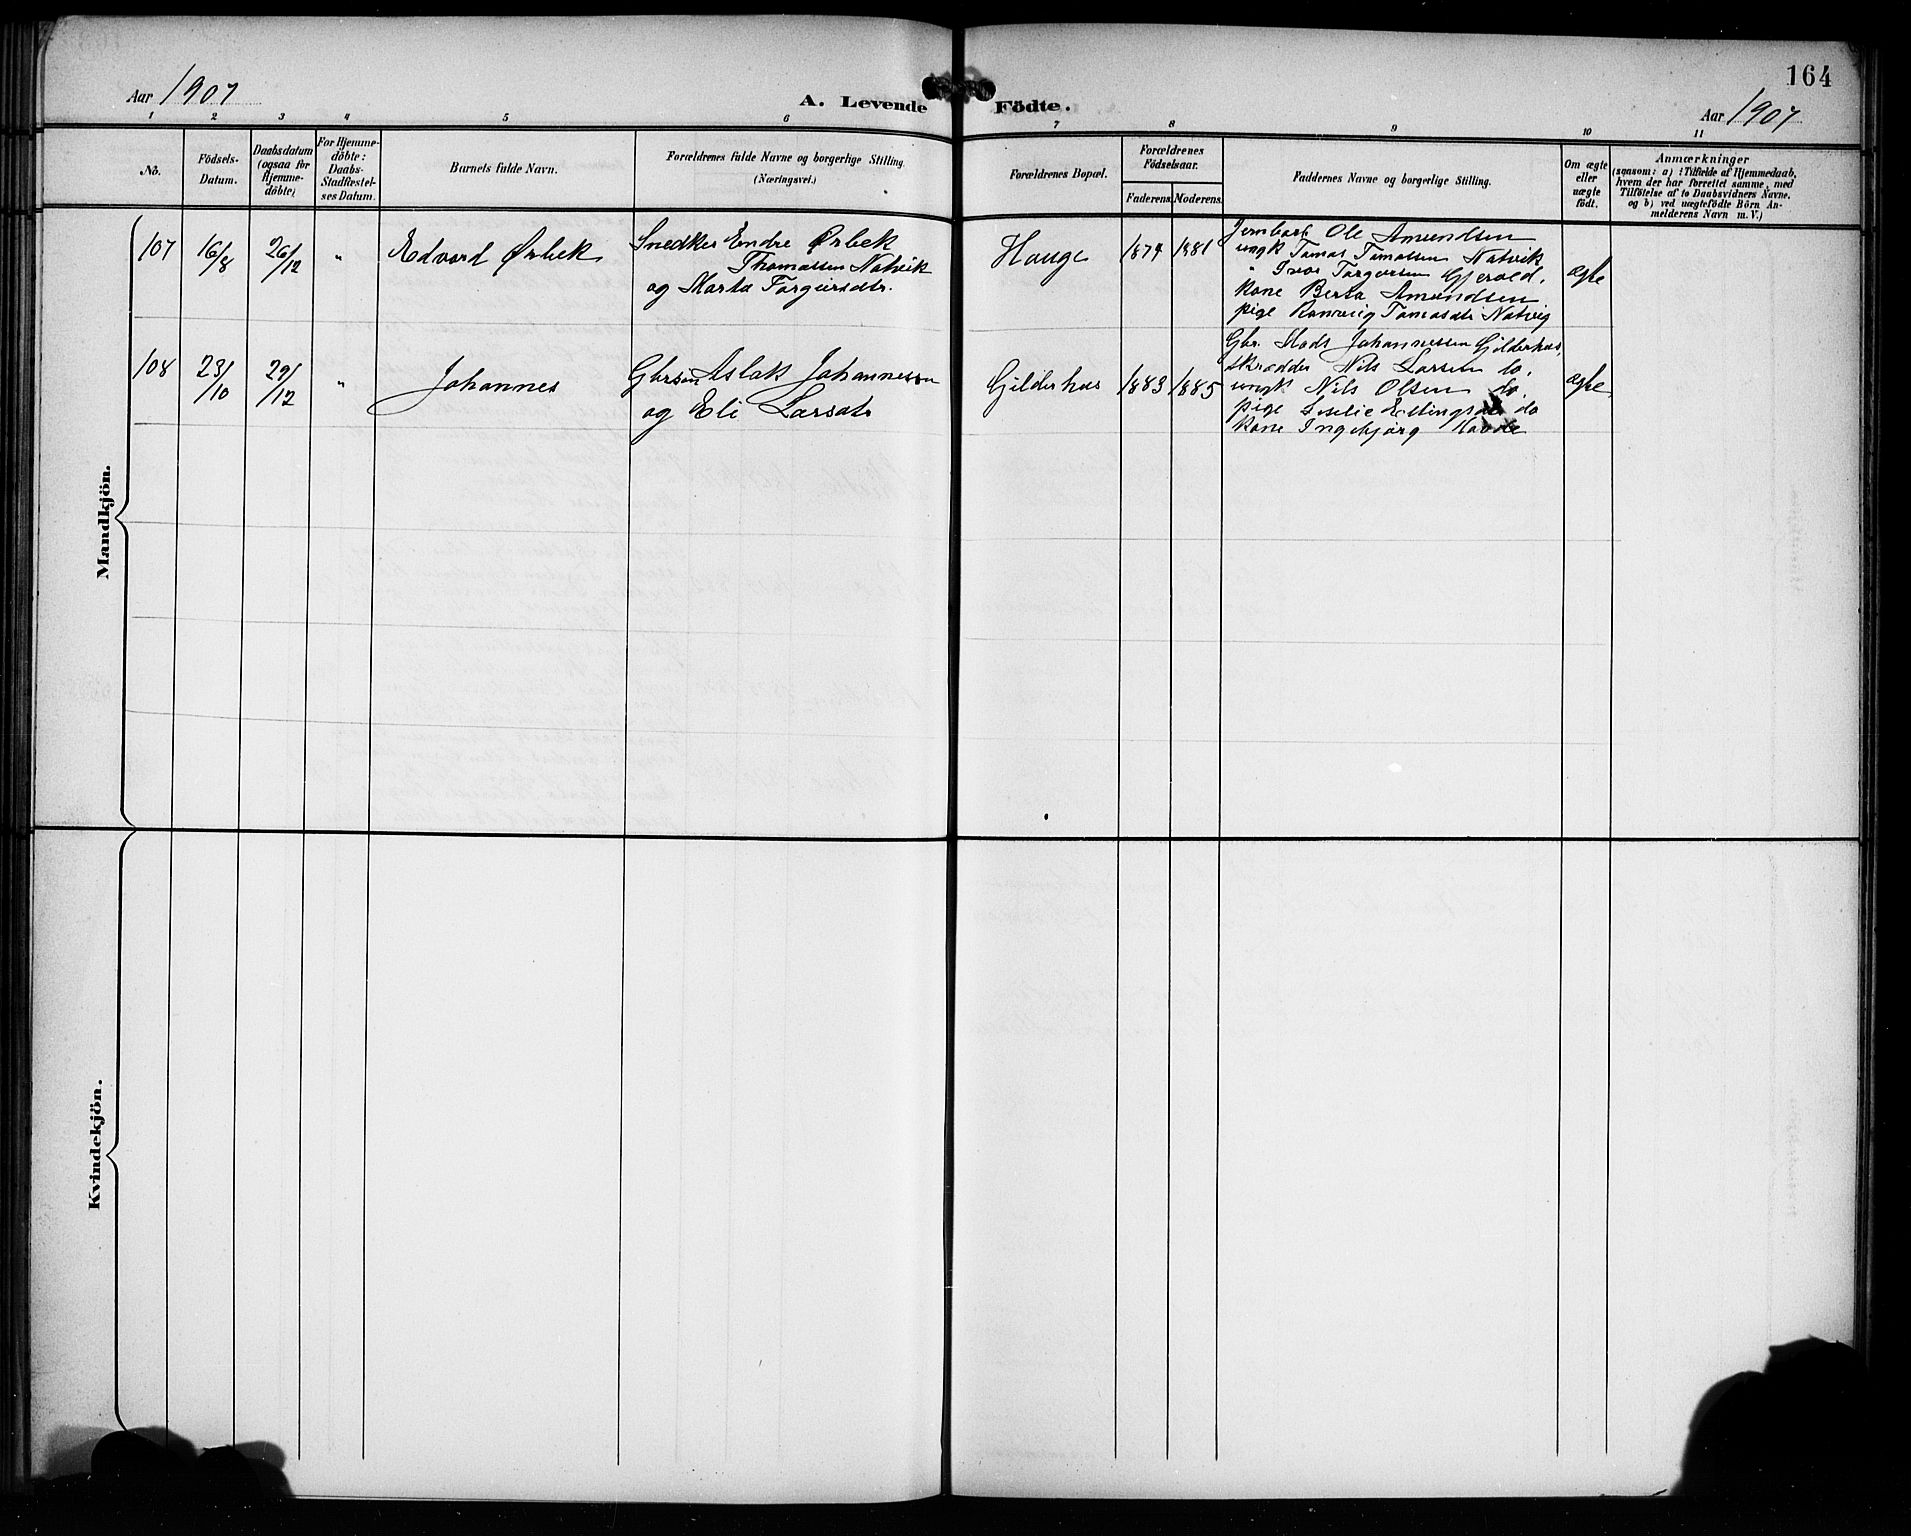 164
Aar 1907
A. Levende Födte.
Aar 1907
1 2 3 4 5 6 7 8 9 10 11
No.
Födsels-
Datum.
Daabsdatum
(ogsaa for
Hjemme-
döbte)
For Hjemme-
döbte:
Daabs-
Stadfæstel-
ses Datum.
Barnets fulde Navn.
Forældrenes fulde Navne og borgerlige Stilling.
(Næringsvei.)
Forældrenes Bopæl.
Forældrenes
Födselsaar.
Faderens. Moderens.
Faddernes Navne og borgerlige Stilling.
Om ægte
eller
uægte
födt.
Anmærkninger
(saasom: a) i Tilfælde af Hjemmedaab,
hvem der har forrettet samme, med
Tilföielse af to Daabsvidners Navne,
og b) ved uægtefödte Börn An-
melderens Navn m. V.)
Mandkjön.
107
16/8
26/12
"
Edvard Ørbek
Snedker Endre Ørbek
Thomassen Natvik
og Marta Torgersdtr.
Hauge
1874
1881
Ole Amundsen
ungk Tomas Tomassen Natvik
" Ivar Torgersen Gjerald.
kone Berta Amundsen
pige Ranveig Tomasdtr Natvig
ægte
108
23/10
29/12
"
Johannes
Gbrsøn Aslak Johannessen
og Eli Larsdtr
Gilderhus
1883
1885
Gbr. Mads Johannessen Gilderhus,
skrædder Nils Larsen do,
ungk Nils Olsen do,
pige Ellingsdtr do
kone Ingebjørg Haude
ægte
Kvindekjön.